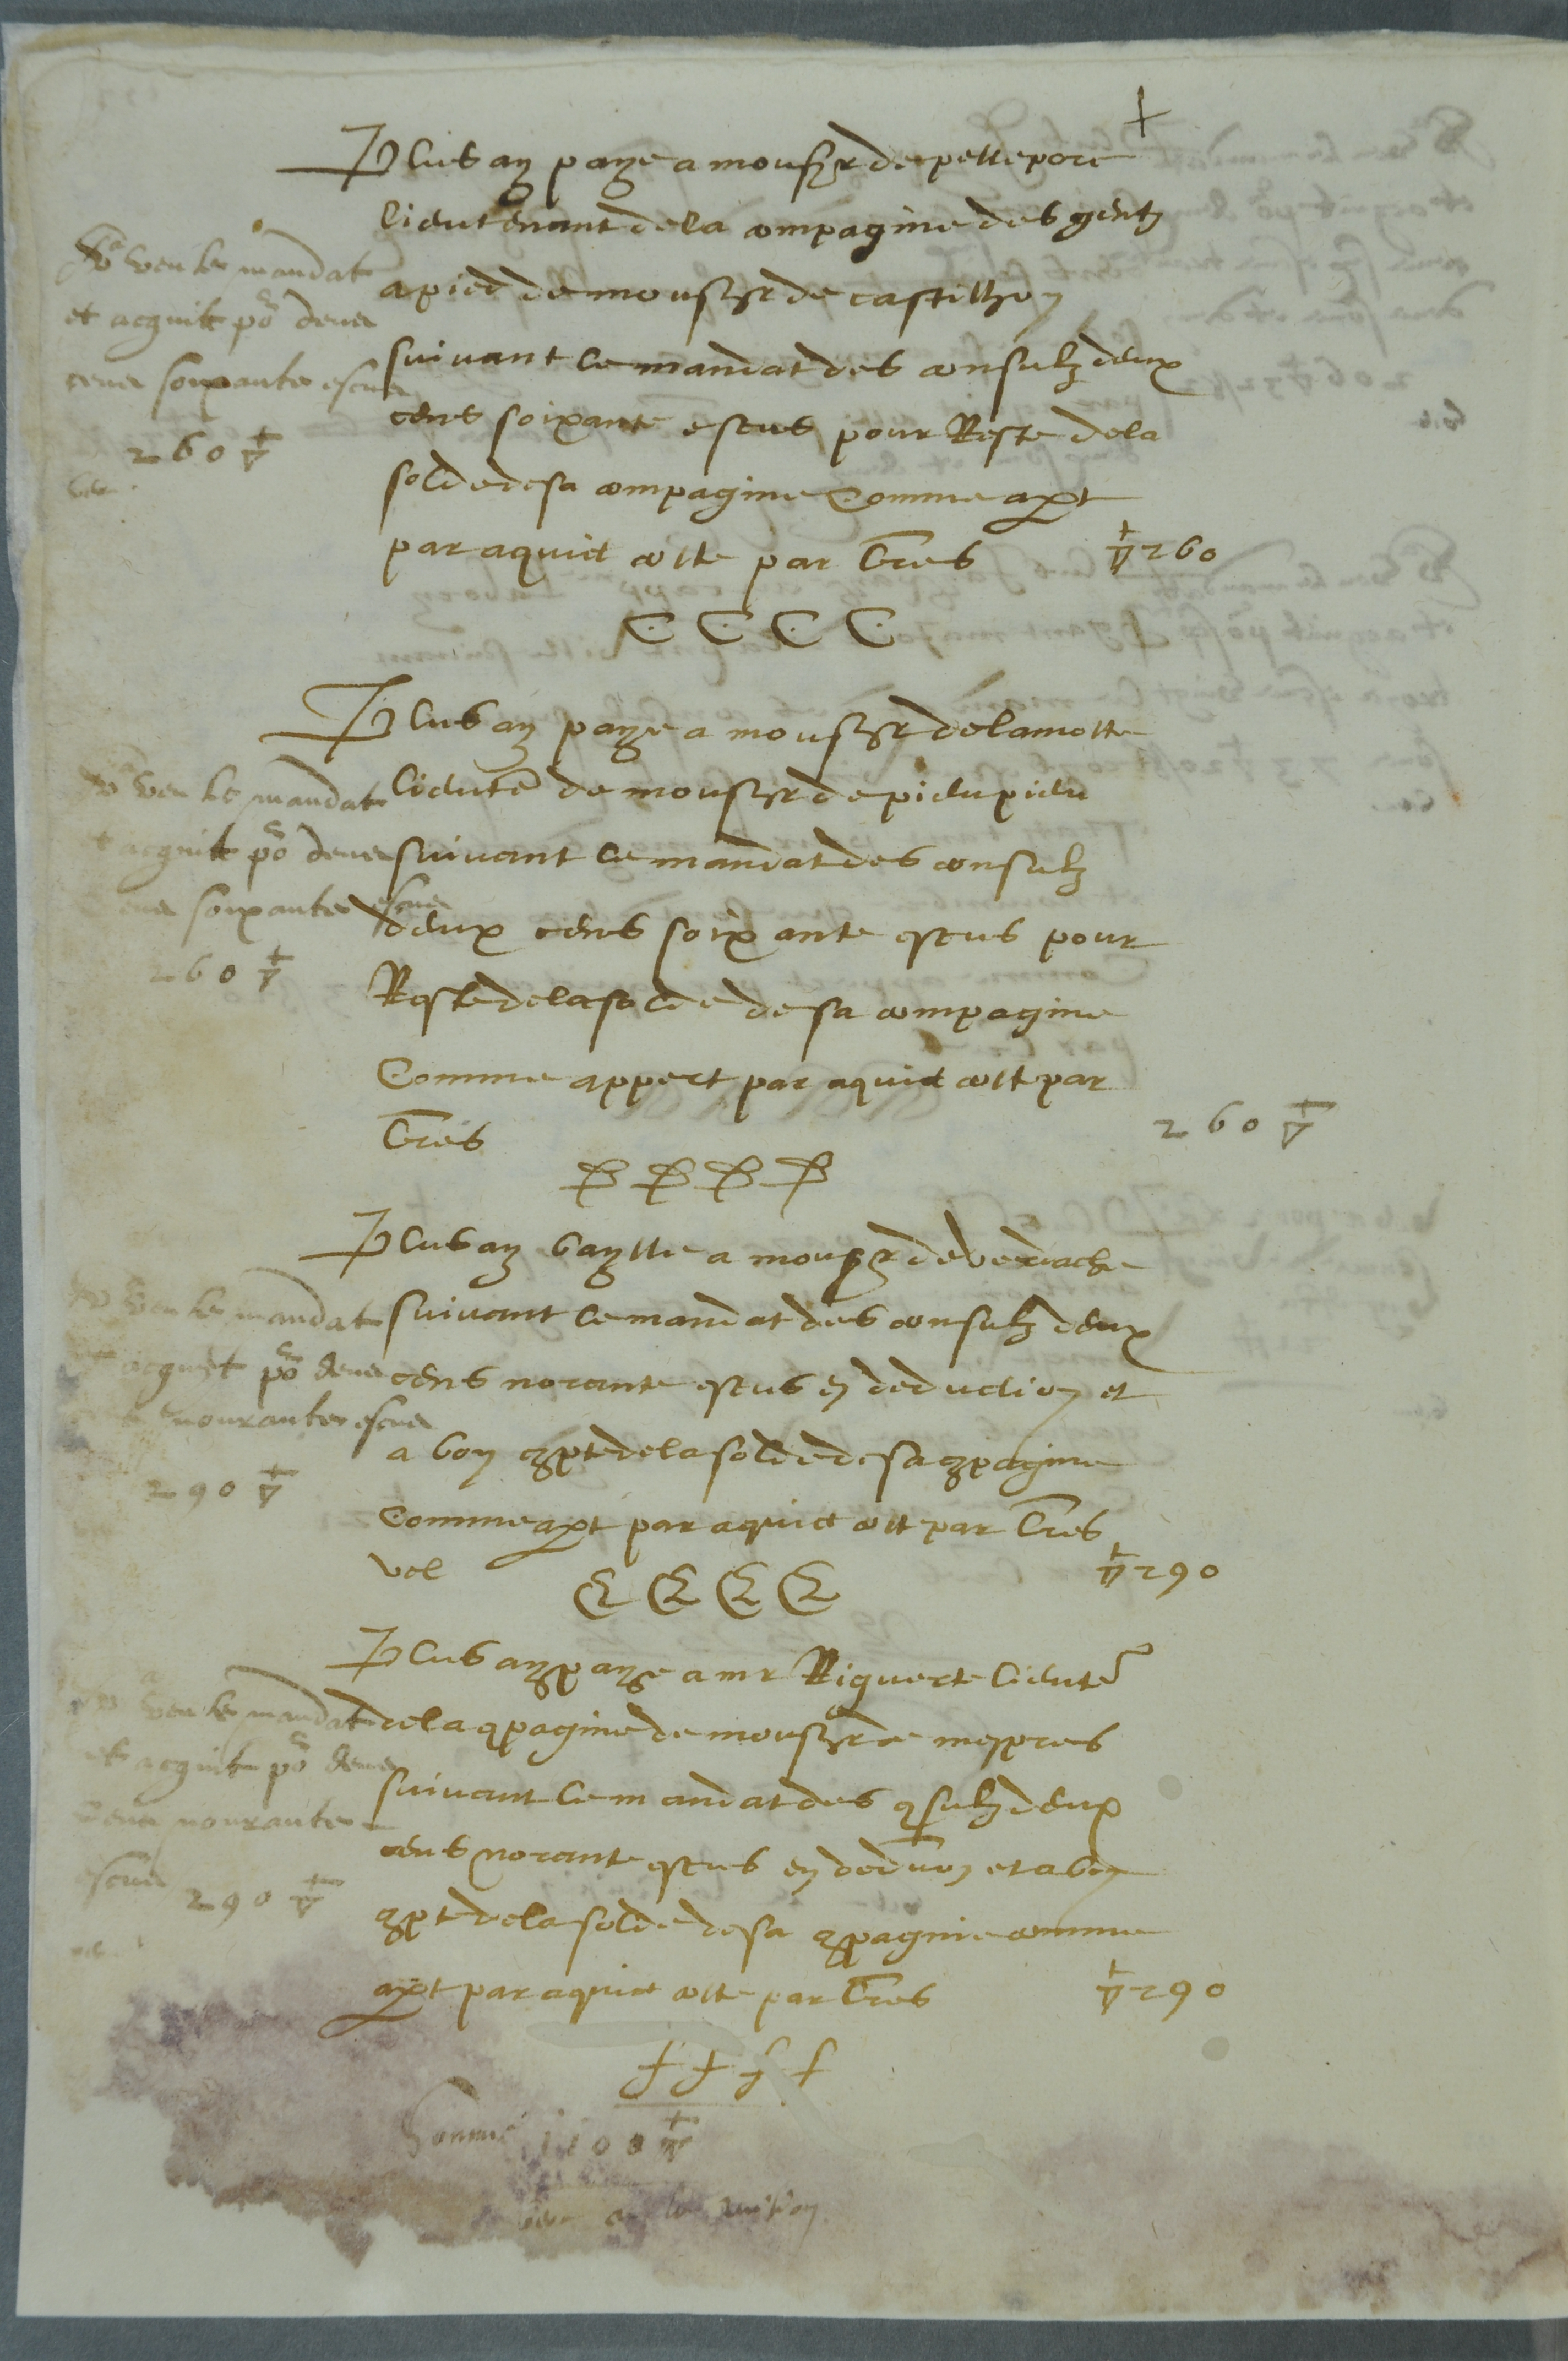 +
Plus ay paye a monsyr de pettepore
lieutenant de la compagine des gentz
a pied de monsyr de castilhon
suivant le mandat des consulz deux
cens soixante escus pour Reste de la
solde de sa compagine Comme apt
par aquict cotte par lres ▽ 260
C C C C
veu le mandat
et acquit po deux
cens soixante escus
260 ▽
Plus ay paye a monsyr de la motte
lieuten de monsyr de pieupieu
suivant le mandat des consulz
deux cens soixante escus pour
Reste de la solde de sa compagine
Comme appert par aquict cott par
lres 260 ▽
D D D D
veu le mandat
et acquit po deux
cens soixante escus
260 ▽
Plus ay baylle a monsr de verdache
suivant le mandat des consulz deux
cens norante escus en deduction et
a bon compte de la solde de sa compagine
Comme apt par aquict cott par lres
vel ▽ 290
E E E E
veu le mandat
et acquit po deux
nonrante escus
290 ▽
Plus ay paye a mr Riquert lieuten
de la compagine de monsyr de mespres
suivant le mandat des consulz deux
cens norante escus en deduon et a bon
compte de la solde de sa compagnie comme
apt par aquict cotte par lres ▽ 290
f f f f
veu le mandat
et acquit po deux
cens nonrante
escus 290 ▽
Somme 1100 ▽